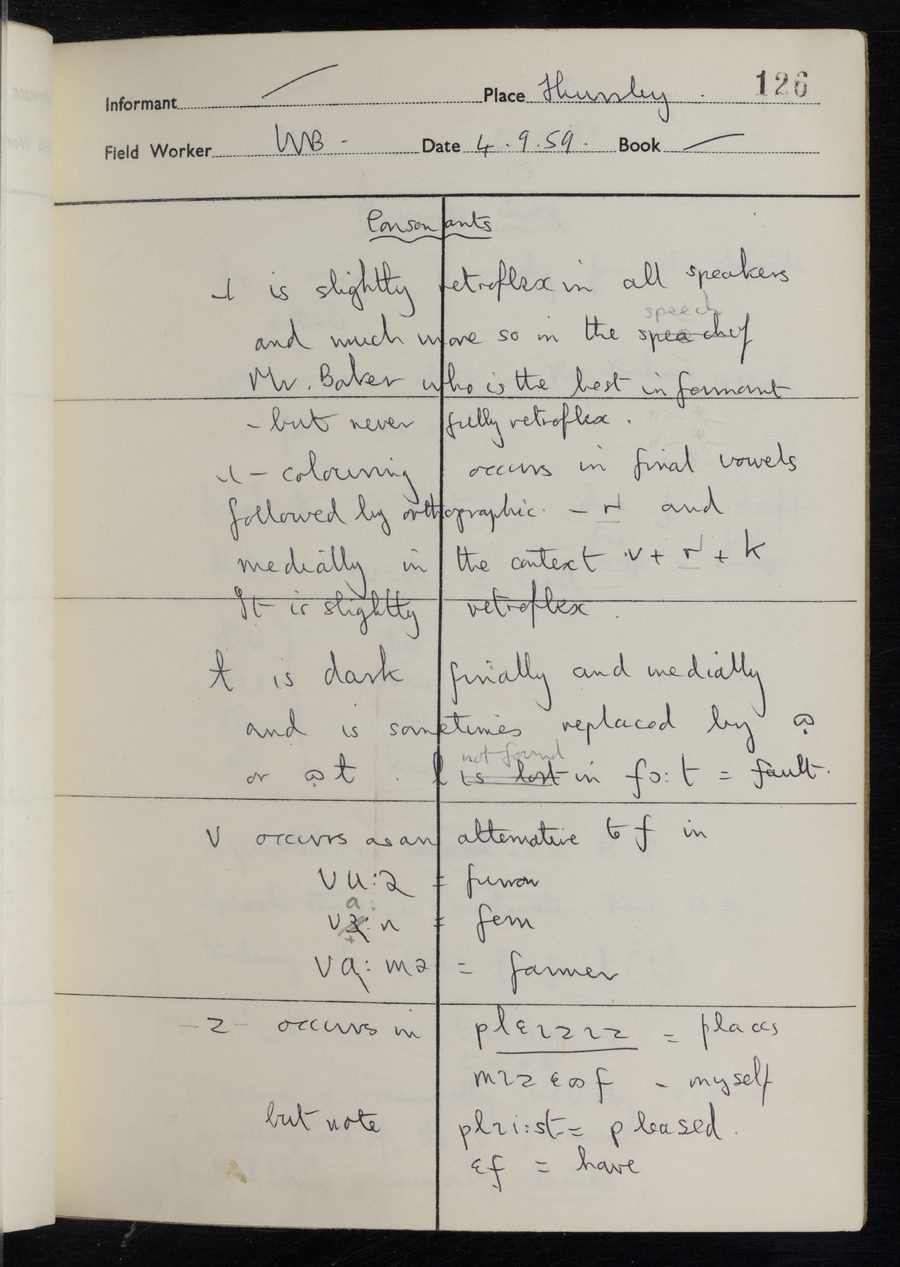 Informant Place Thursley . 126
Field Worker WB - Date 4.9.59. Book
Consonants
ɹ is slightly retroflex in all speakers
speech
and much more so in the speech of
Mr. Baker who is the best informant
- but never fully retroflex .
ɹ - colouring occurs in final vowels
followed by orthographic - r and
medially in the context v + r + k
It is slightly retroflex .
ɫ is dark finally and medially
and is sometimes replaced by
or ɫ . not found
l is lost in fɔ:t = fault.
v occurs as an alternative to f in
= furrow
a:
= fern
= farmer
- z - occurs in = places
- myself
but note = pleased .
ɛf = have